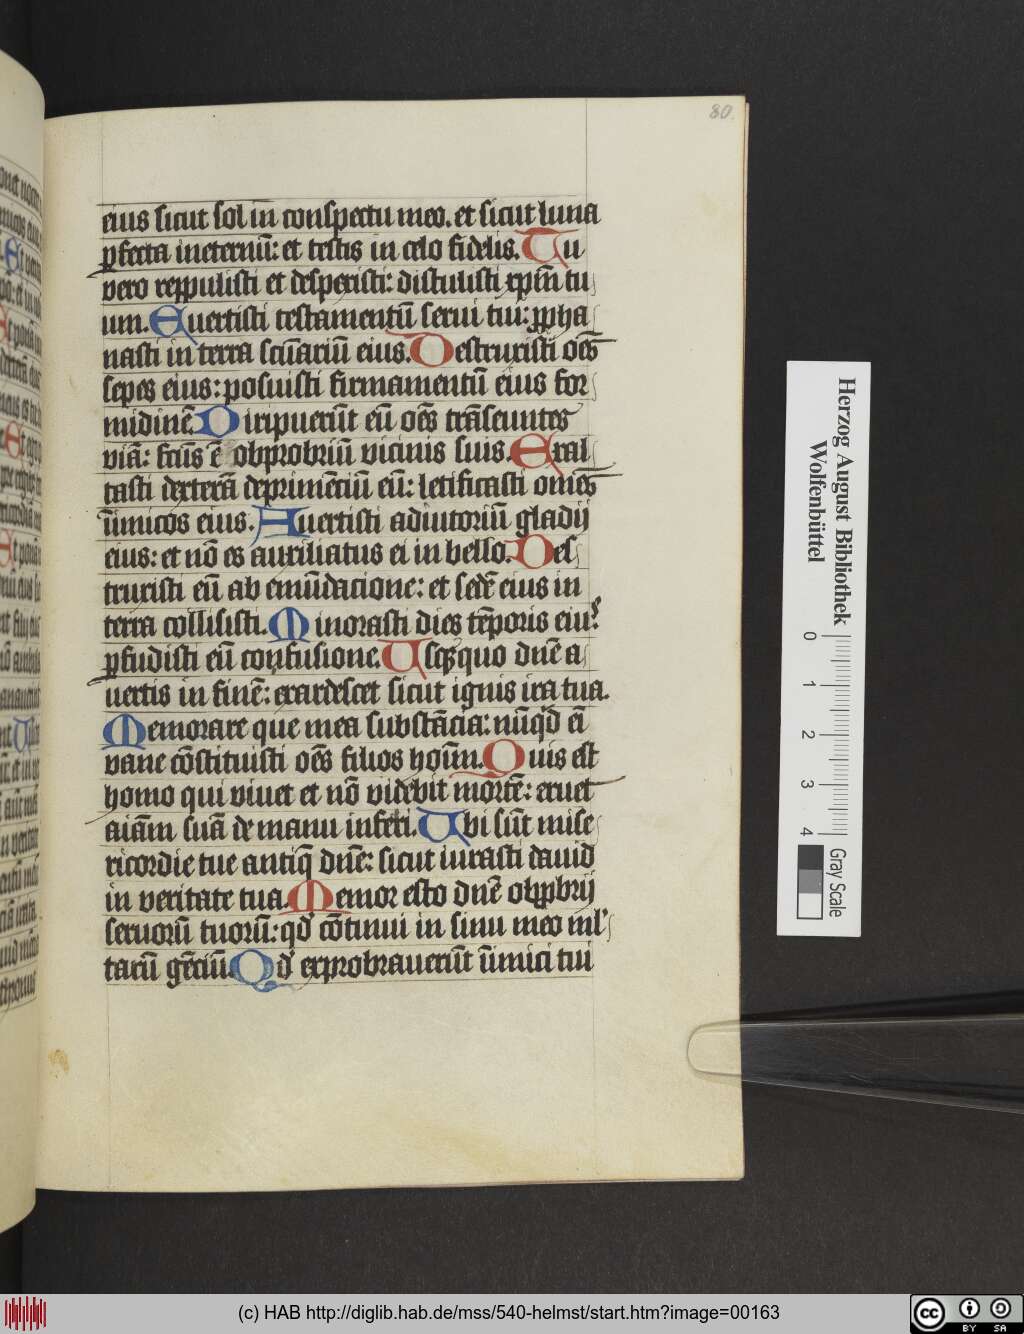 80.
eius sicut sol in conspectu meo. et sicut luna
ꝑfecta ineternū: et testis in celo fidelis. Tu
vero reppulisti et despexisti: distulisti xp̄m tu
um. Euertisti testamentū serui tui: ꝓpha
nasti in terra scūariū eius. Destruxisti oēs
sepes eius: posuisti firmamentū eius for
midinē. Diripuerūt eū oēs trāseuntes
viā: fcūs ē obprobriū vicinis suis. Exal
tasti dexterā deprimēciū eū: letificasti om̄es
inimicos eius. Auertisti adiutoriū gladij
eius: et nō es auxiliatus ei in bello. Des
truxisti eū ab emūdacione: et sedē eius in
terra collisisti. Minorasti dies tēporis eiuꝰ:
ꝑfudisti eū confusione. Usq̄quo dn̄e a
uertis in finē: exardescet sicut ignis ira tua.
Memorare que mea substācia: nūqͥd eī
vane cōstituisti oēs filios hoīm. Quis est
homo qui viuet et nō videbit mortē: eruet
aīam suā de manu inferi. Ubi sūt mise
ricordie tue antiq̄ dn̄e: sicut iurasti dauid
in veritate tua. Memor esto dn̄e obꝓbrij
seruorū tuorū: qd̓ cōtinui in sinu meo ml̓
tarū gēciū. Qd̓ exprobrauerūt inimici tui
Herzog August Bibliothek
Wolfenbüttel
0 1 2 3 4
Gray Scale
(c) HAB http://diglib.hab.de/mss/540-helmst/start.htm?image=00163
cc BY SA